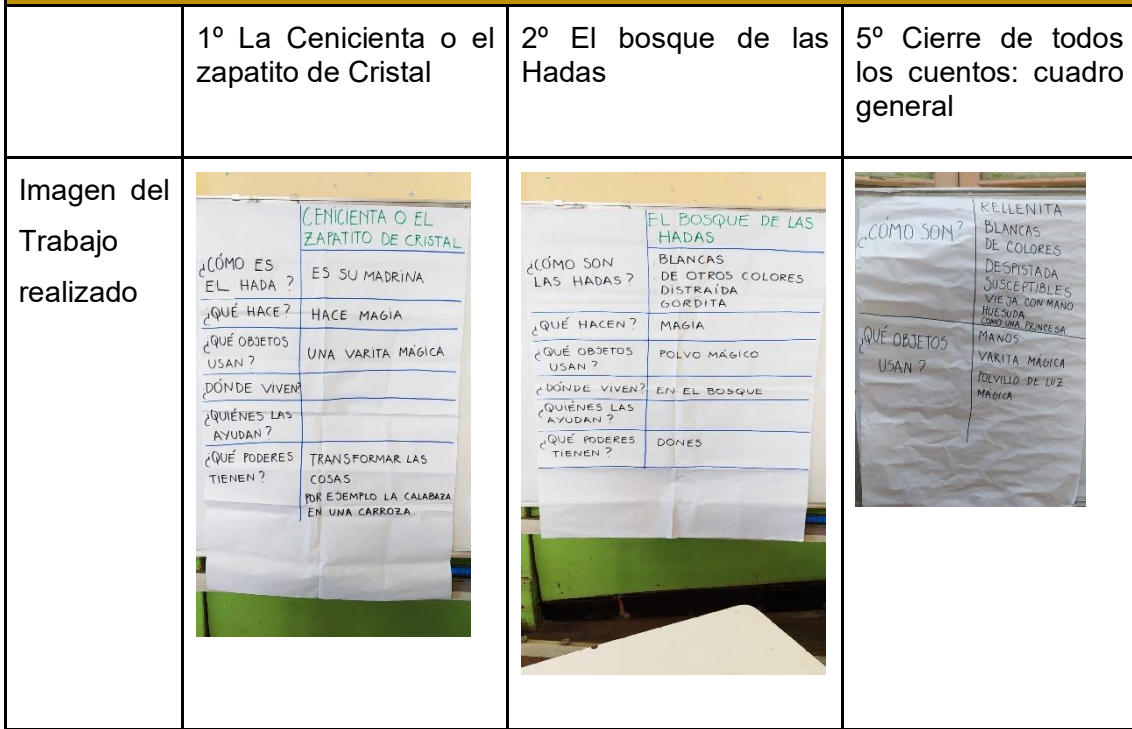 1º La Cenicienta o el
zapatito de Cristal
2º El bosque de las
Hadas
5º Cierre de todos
los cuentos: cuadro
general
Imagen del
Trabajo
realizado
CENICIENTA O EL
ZAPATITO DE CRISTAL
¿CÓMO ES
EL HADA ?
ES SU MADRINA
¿QUÉ HACE?
HACE MAGIA
¿QUÉ OBJETOS
USAN ?
UNA VARITA MÁGICA
¿DÓNDE VIVEN?
¿QUIÉNES LAS
AYUDAN ?
¿QUÉ PODERES
TIENEN ?
TRANSFORMAR LAS
COSAS
POR EJEMPLO LA CALABAZA
EN UNA CARROZA.
EL BOSQUE DE LAS
HADAS
¿CÓMO SON
LAS HADAS ?
BLANCAS
DE OTROS COLORES
DISTRAÍDA
GORDITA
¿QUÉ HACEN ?
MAGIA
¿QUÉ OBJETOS
USAN ?
POLVO MÁGICO
¿DÓNDE VIVEN?
EN EL BOSQUE
¿QUIÉNES LAS
AYUDAN ?
¿QUÉ PODERES
TIENEN ?
DONES
¿CÓMO SON?
RELLENITA
BLANCAS
DE COLORES
DESPISTADA
SUSCEPTIBLES
VIEJA CON MANO
HUESUDA
COMO UNA PRINCESA
¿QUÉ OBJETOS
USAN ?
MANOS
VARITA MÁGICA
POLVILLO DE LUZ
MÁGICA